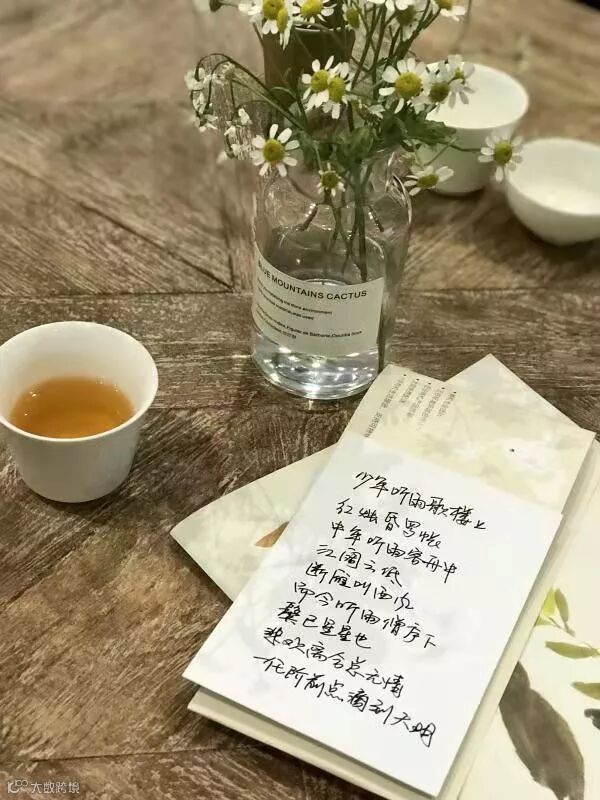 BLUE MOUNTAINS CACTUS
少年听雨歌楼上
红烛昏罗帐
中年听雨客舟中
江阔云低
断雁叫西风
而今听雨僧庐下
鬓已星星也
悲欢离合总无情
一任阶前点滴到天明
大数跨境